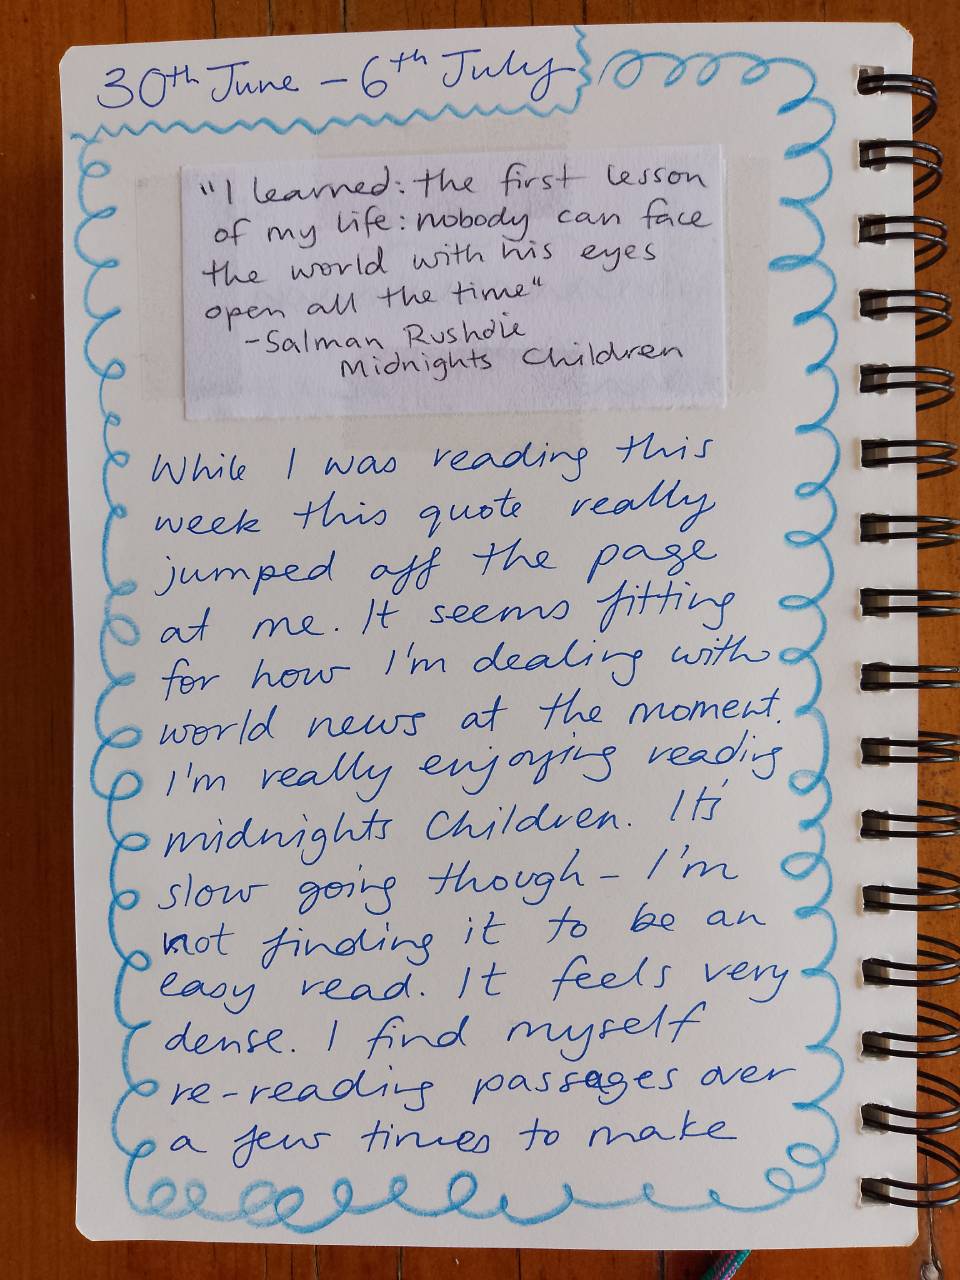 30th June - 6th July
"I learned: the first lesson
of my life: nobody can face
the world with his eyes
open all the time"
-Salman Rushdie
Midnights Children
While I was reading this
week this quote really
jumped off the page
at me. It seems fitting
for how I'm dealing with
world news at the moment.
I'm really enjoying reading
midnights Children. It's
slow going though - I'm
not finding it to be an
easy read. It feels very
dense. I find myself
re-reading passages over
a few times to make